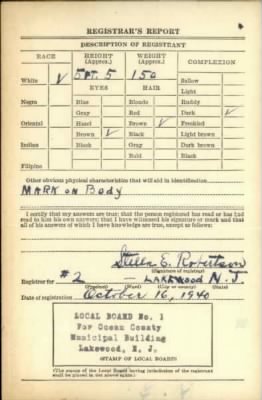 REGISTRAR'S REPORT
DESCRIPTION OF REGISTRANT
RACE HEIGHT (Approx.) WEIGHT (Approx.) COMPLEXION
White ✓ 5 FT. 5 150 Sallow
EYES HAIR Light
Negro Blue Blonde Ruddy
Gray Red Dark ✓
Oriental Hazel Brown ✓ Freckled
Brown ✓ Black Light brown
Indian Black Gray Dark brown
Bald Black
Filipino
Other obvious physical characteristics that will aid in identification
MARK on Body
I certify that my answers are true; that the person registered has read or has had
read to him his own answers; that I have witnessed his signature or mark and that
all of his answers of which I have knowledge are true, except as follows:
Stella E. Robertson
(Signature of registrar)
Registrar for #2 LAKEWOOD N.J.
(Precinct) (Ward) (City or county) (State)
Date of registration October 16, 1940
LOCAL BOARD No. 1
For Ocean County
Municipal Building
Lakewood, N. J.
(STAMP OF LOCAL BOARD)
(The stamp of the Local Board having jurisdiction of the registrant
shall be placed in the above space.)